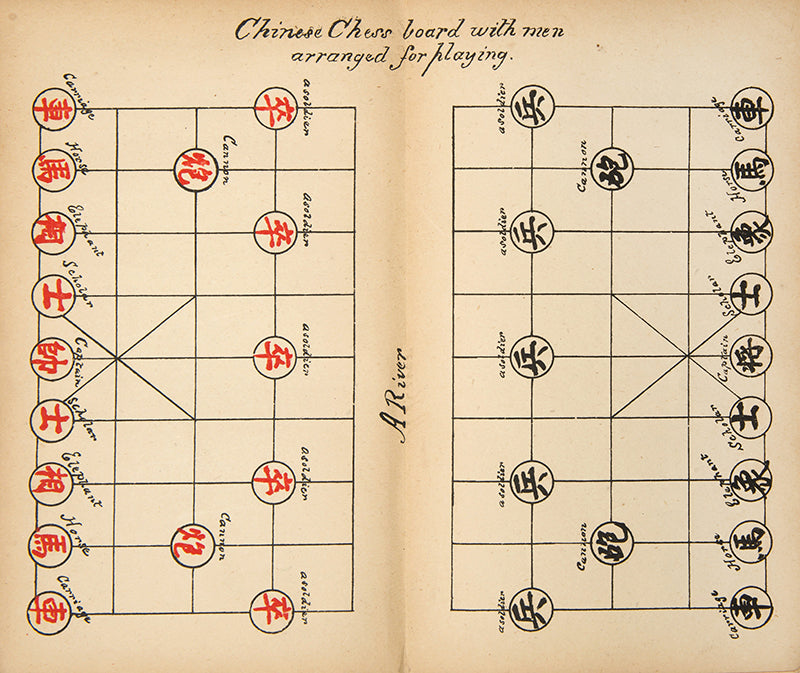 Chinese Chess board with men
arranged for playing.
Carriage
車
Horse
馬
Elephant
相
Scholar
士
Captain
帥
Scholar
士
Elephant
相
Horse
馬
Carriage
車
Cannon
炮
Cannon
炮
a soldier
卒
a soldier
卒
a soldier
卒
a soldier
卒
a soldier
卒
A River
a soldier
兵
a soldier
兵
a soldier
兵
a soldier
兵
a soldier
兵
Cannon
砲
Cannon
砲
Carriage
車
Horse
馬
Elephant
象
Scholar
士
Captain
将
Scholar
士
Elephant
象
Horse
馬
Carriage
車